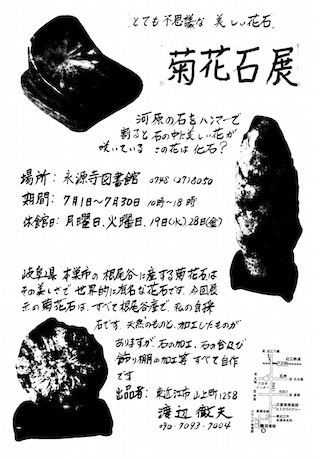 とても不思議な 美しい花石
菊花石展
河原の石をハンマーで
割ると石の中に美しい花が
咲いている この花は化石?
場所: 永源寺図書館 0748(27)8050
期間: 7月1日〜7月30日 10時〜18時
休館日: 月曜日、火曜日、19日(水)28日(金)
岐阜県本巣市の根尾谷に産する菊花石は
その美しさで世界的に有名な花石です。今回展
示の菊花石は、すべて根尾谷産で、私の自採
石です。天然のものと、加工したものが
ありますが 石の加工、石の台及び
飾り棚の加工等 すべて自作
です
出品者: 東近江市山上町1258
渡辺
090-7093-7004